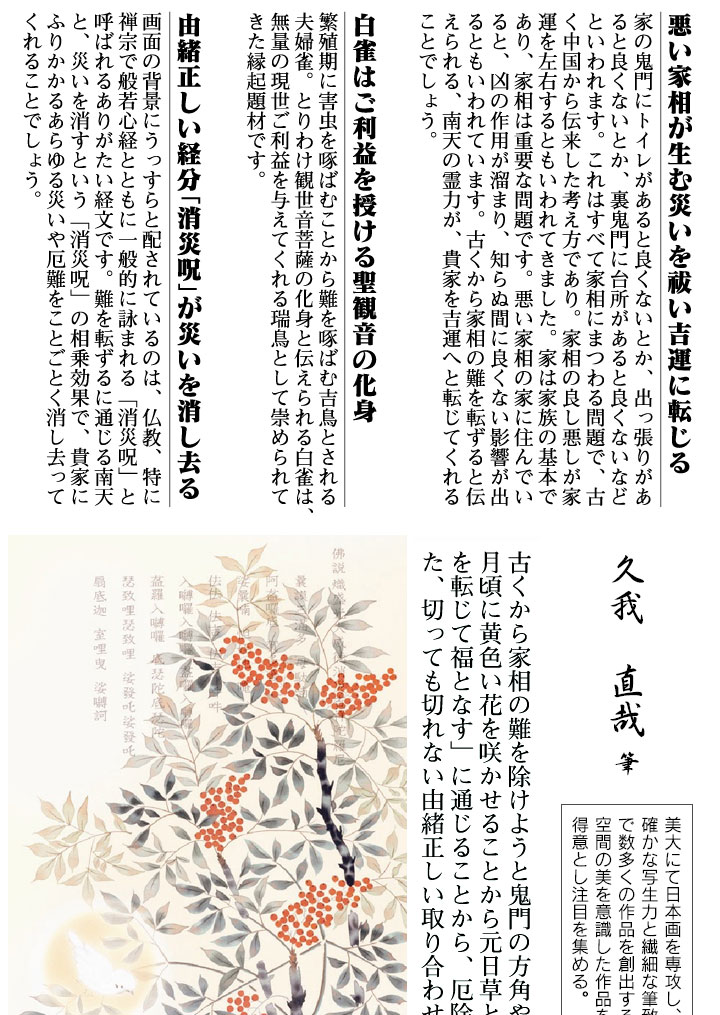 悪い家相が生む災いを祓い吉運に転じる
家の鬼門にトイレがあると良くないとか、出っ張りがあ
ると良くないとか、裏鬼門に台所があると良くないなど
といわれます。これはすべて家相にまつわる問題で、古
く中国から伝来した考え方であり。家相の良し悪しが家
運を左右するともいわれてきました。家は家族の基本で
あり、家相は重要な問題です。悪い家相の家に住んでい
ると、凶の作用が溜まり、知らぬ間に良くない影響が出
るともいわれています。古くから家相の難を転ずると伝
えられる、南天の霊力が、貴家を吉運へと転じてくれる
ことでしょう。
白雀はご利益を授ける聖観音の化身
繁殖期に害虫を啄ばむことから難を啄ばむ吉鳥とされる
夫婦雀。とりわけ観世音菩薩の化身と伝えられる白雀は、
無量の現世ご利益を与えてくれる瑞鳥として崇められて
きた縁起題材です。
由緒正しい経分「消災呪」が災いを消し去る
画面の背景にうっすらと配されているのは、仏教、特に
禅宗で般若心経とともに一般的に詠まれる「消災呪」と
呼ばれるありがたい経文です。難を転ずるに通じる南天
と、災いを消すという「消災呪」の相乗効果で、貴家に
ふりかかるあらゆる災いや厄難をことごとく消し去って
くれることでしょう。
久我 直哉 筆
美大にて日本画を専攻し、
確かな写生力と繊細な筆致
で数多くの作品を創出する
空間の美を意識した作品を
得意とし注目を集める。
古くから家相の難を除けようと鬼門の方角や
月頃に黄色い花を咲かせることから元日草と
を転じて福となす」に通じることから、厄除
た、切っても切れない由緒正しい取り合わせ
佛説
瑟致哩瑟致哩 娑發吒娑發吒
扇底迦 室哩曳 娑嚩訶